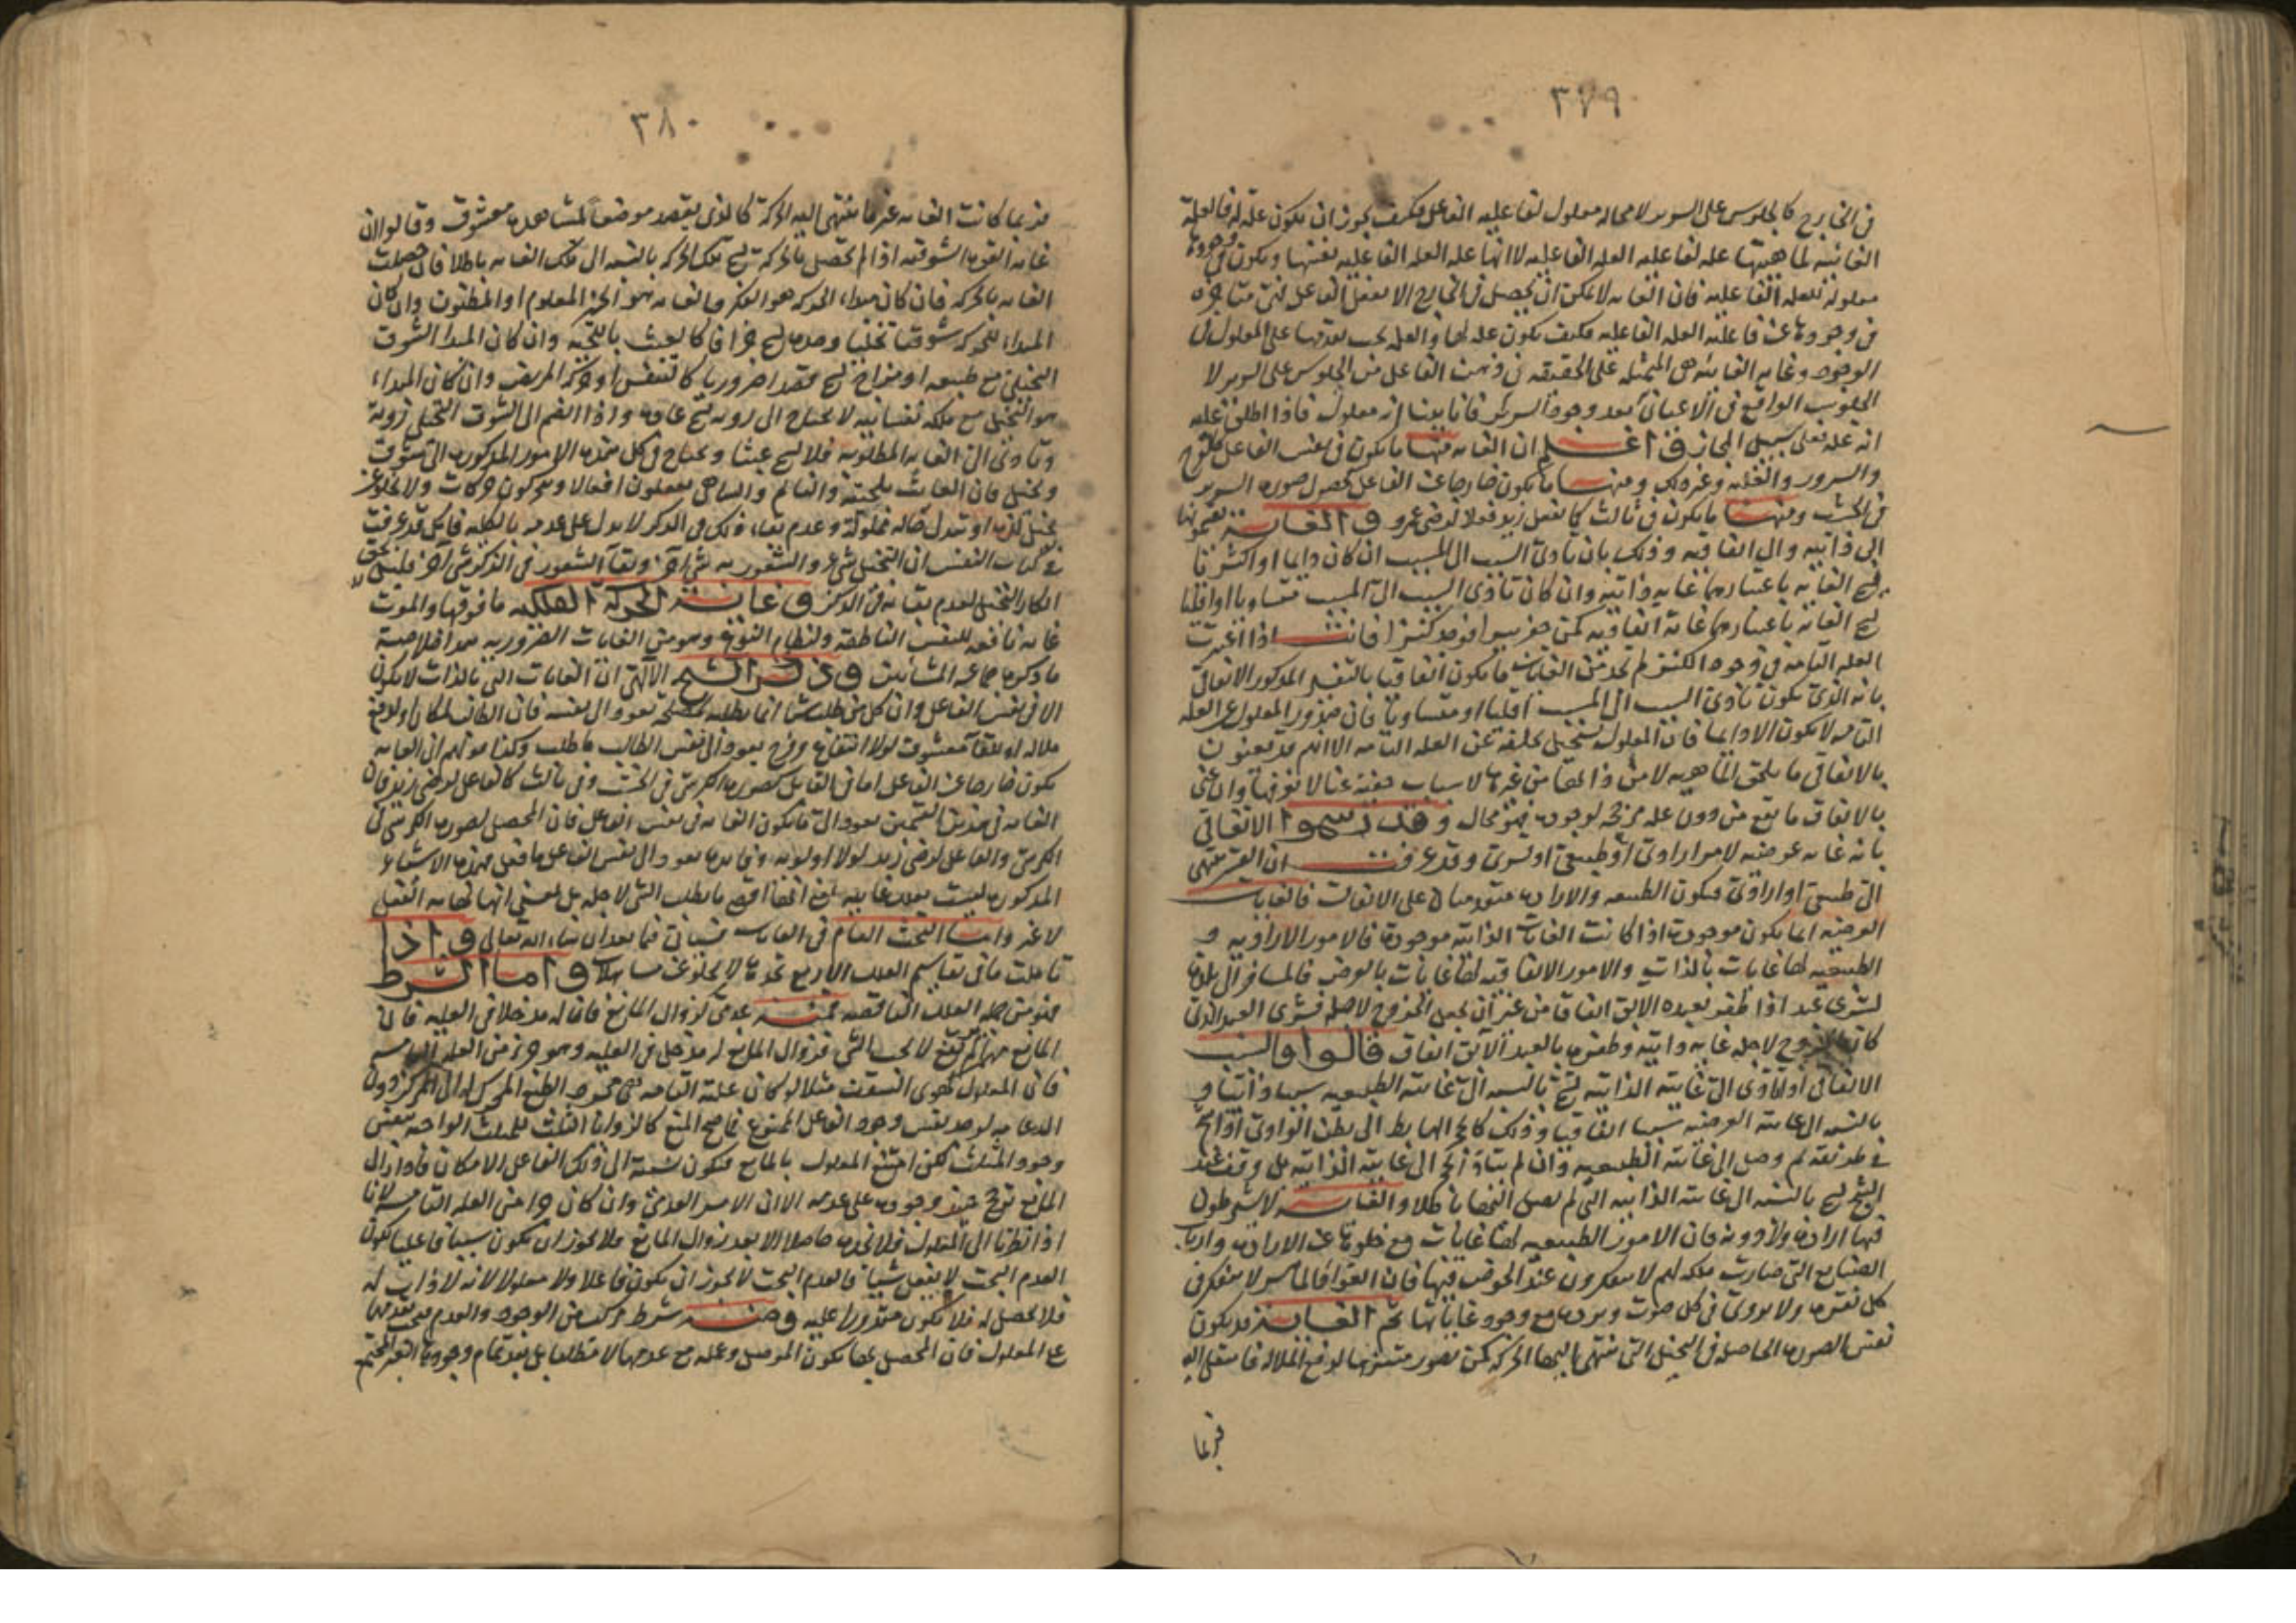 ٣٧٩
في الخارج كالجلوس على السرير لا محالة معلول لفاعلية الفاعل فكيف يجوز ان يكون علة له فالعلة
الغائية لماهيتها علة لفاعلية العلة الفاعلية لا انها علة العلة الفاعلية نفسها ويكون في وجودها
معلولة للعلة الفاعلية فان الغاية لا يمكن ان يحصل في الخارج الا بفعل الفاعل فهي متاخرة
في وجودها عن فاعلية العلة الفاعلية فكيف يكون علة لها والعلة يجب تقدمها على المعلول في
الوجود وغاية الغاية هي المتمثلة على الحقيقة في ذهن الفاعل من الجلوس على السرير لا
الجلوس الواقع في الاعيان بعد وجود السرير فانا بينا انه معلول فاذا اطلق عليه
انه علة فعلى سبيل المجاز واعلم ان الغاية منها ما يكون في نفس الفاعل كالفرح
والسرور والغلبة وغير ذلك ومنها ما يكون خارجا عن الفاعل كحصول صورة السرير
في الخشب ومنها ما يكون في ثالث كما يفعل زيد فعلا لرضى عمرو والغاية يقسمونها
الى ذاتية والى اتفاقية وذلك بان تادى السبب الى المسبب ان كان دايما او اكثريا
سمي الغاية باعتبارهما غاية ذاتية وان كان تادى السبب الى المسبب متساويا او اقليا
سمي الغاية باعتبارهما غاية اتفاقية كمن حفر بيرا فوجد كنزا فانت اذا اعتبرت
العلة التامة في وجود الكنز لم تجد من الغايات ما يكون اتفاقيا بالتفسير المذكور الاتفاق
بانه الذي يكون تادى السبب الى المسبب اقليا او متساويا فان صدور المعلول عن العلة
التامة لا يكون الا دايما فان المعلول يستحيل تخلفه عن العلة التامة الا انهم قد يعنون
بالاتفاقي ما يلحق الماهية لا من ذاتها من غيرها لاسباب خفية عنا لا نعرفها وان عنى
بالاتفاق ما يقع من دون علة مرجحة لوجوده فهو محال وقد رسموا الاتفاقي
بانه غاية عرضية لامر ارادي او طبيعي او قسري وقد عرفت ان القسر ينتهي
الى طبيعي او ارادي فيكون الطبيعة والارادة متقدمتان على الاتفاقات فالغايات
العرضية انما يكون موجودة اذا كانت الغايات الذاتية موجودة فالامور الارادية و
الطبيعية لها غايات بالذات والامور الاتفاقية لها غايات بالعرض فالمسافر الى بلدة
لشرى عبد اذا ظفر بعبده الابق اتفاقا من غير ان يجعل الخروج لاجله فشرى العبد الذي
كان الخروج لاجله غاية ذاتية وظفره بالعبد الآبق اتفاق قالوا والسبب
الاتفاقي اذا تادى الى غايته الذاتية سمي بالنسبة الى غايته الطبيعية سببا ذاتيا و
بالنسبة الى غايته العرضية سببا اتفاقيا وذلك كالحجر الهابط الى بطن الوادي
في طريقه ثم وصل الى غايته الطبيعية وان لم يتاد الى غايته الذاتية بل وقف عند
سمي بالنسبة الى غايته الذاتية التي لم تصل اليها باطلا والغاية لا يشترطون
فيها ارادة ولا روية فان الامور الطبيعية لها غايات مع خلوها عن الارادة وارباب
الصنايع التي صارت ملكة لهم لا يتفكرون عند الخوض فيها فان العواد الماهر لا يتفكر في
كل نقرة ولا يروي في كل صوت مع وجود غاياتها ثم الغاية قد يكون
نفس الصورة الحاصلة في التخيل التي تنتهي اليها الحركة كمن تصور متنزها لدفع الملالة فانتقل اليه
فربما
٣٨٠
فربما كانت الغاية غير ما ينتهي اليه الحركة كالذي يقصد موضعا لمشاهدة معشوق وقالوا ان
غاية القوة الشوقية اذا لم تحصل بالحركة سمي تلك الحركة بالنسبة الى تلك الغاية باطلا فان حصلت
الغاية بالحركة فان كان مبداء الحركة هو الفكر فالغاية هو الخير المعلوم او المظنون وان كان
المبداء للتحريك شوقيا تخيليا وحده سمي جزافا كالعبث باللحية وان كان المبدا الشوق
التخيلي مع طبيعة او مزاج سمي قصدا ضروريا كالتنفس او حركة المريض وان كان المبداء
هو التخيل مع ملكة نفسانية لا يحتاج الى روية سمي عادة واذا انضم الى الشوق التخيلي روية
وتادى الى الغاية المطلوبة فلا يسمى عبثا ويحتاج في كل هذه الامور المذكورة الى شوق
وتخيل فان العابث بلحيته والنايم والساهي يفعلون افعالا ويتحركون حركات ولا يخلو عن
تخيل لذة او تبدل حالة مملولة وعدم بقاء ذلك في الذكر لا يدل على عدمه بالكلية فانك قد عرفت
في كتاب النفس ان التخيل شيء والشعور به شيء آخر وبقاء الشعور في الذكر شيء آخر فلينبغي
انكار التخيل لعدم بقائه في الذكر وغاية الحركة الفلكية ما فوقها والموت
غاية نافعة للنفس الناطقة ولنظام النوع وهو من الغايات الضرورية هذا خلاصة
ما ذكره جماعة المشائين وذكر الشيخ الالهي ان الغايات التي بالذات لا يكون
الا في نفس الفاعل وان كل من طلب شيئا انما يطلبه لمصلحة تعود الى نفسه فان الطالب لمكان او لدفع
ملالة او للقاء معشوق لولا انتفاع وفرح يعود الى نفس الطالب ما طلب وكذا قولهم ان الغاية
يكون خارجا عن الفاعل اما في القابل كصورة الكرسي في الخشب وفي ثالث كالفاعل لرضى زيد فان
الغاية في هذين القسمين يعود الى ما يكون الغاية في نفس الفاعل فان المحصل لصورة الكرسي في
الكرسي والفاعل لرضى زيد لولا اولوية وفايدة يعود الى نفس الفاعل ما فعل فهذه الاشياء
المذكورة ليست بعلة غائية مع انها اقصى ما يطلب الشيء لاجله بل بمعنى انها نهاية الفعل
لا غير واما البحث العام في الغايات فسياتي فيما بعد ان شاء الله تعالى واذا
تاملت ما في تقاسيم العلل الاربع تجدها لا يخلو عن مساهلات واما الشرط
فهو من جملة العلل الناقصة فمنه عدمي كزوال المانع فان له مدخلا في العلية فان
المانع مهما لم يرتفع لا يجب الشيء فزوال المانع له مدخل في العلية وهو جزء من العلة التامة
فان المعلول كهوي السقف مثلا لو كان علته التامة هي مجرد الطبع المحرك له الى المركز دون
الدعامة لوجد بنفس وجود الفاعل الممنوع كالزوايا الثلث للمثلث الواحدة بنفس
وجود المثلث لكن امتنع المعلول بالمانع فيكون نسبته الى ذلك الفاعل الامكان فاذا زال
المانع ترجح حينئذ وجوده على عدمه الا ان الامر العدمي وان كان جزء من العلة التامة لانا
اذا نظرنا الى المعلول فلا نجده حاصلا الا بعد زوال المانع فلا يجوز ان يكون سببا فاعليا لكون
العدم البحت لا يفعل شيئا فالعدم البحت لا يجوز ان يكون فاعلا ولا معلولا لانه لا ذات له
فلا تحصل له فلا يكون مقدورا عليه ومنه شرط مركب من الوجود والعدم يجب تقدمها
على المعلول فان المحصل